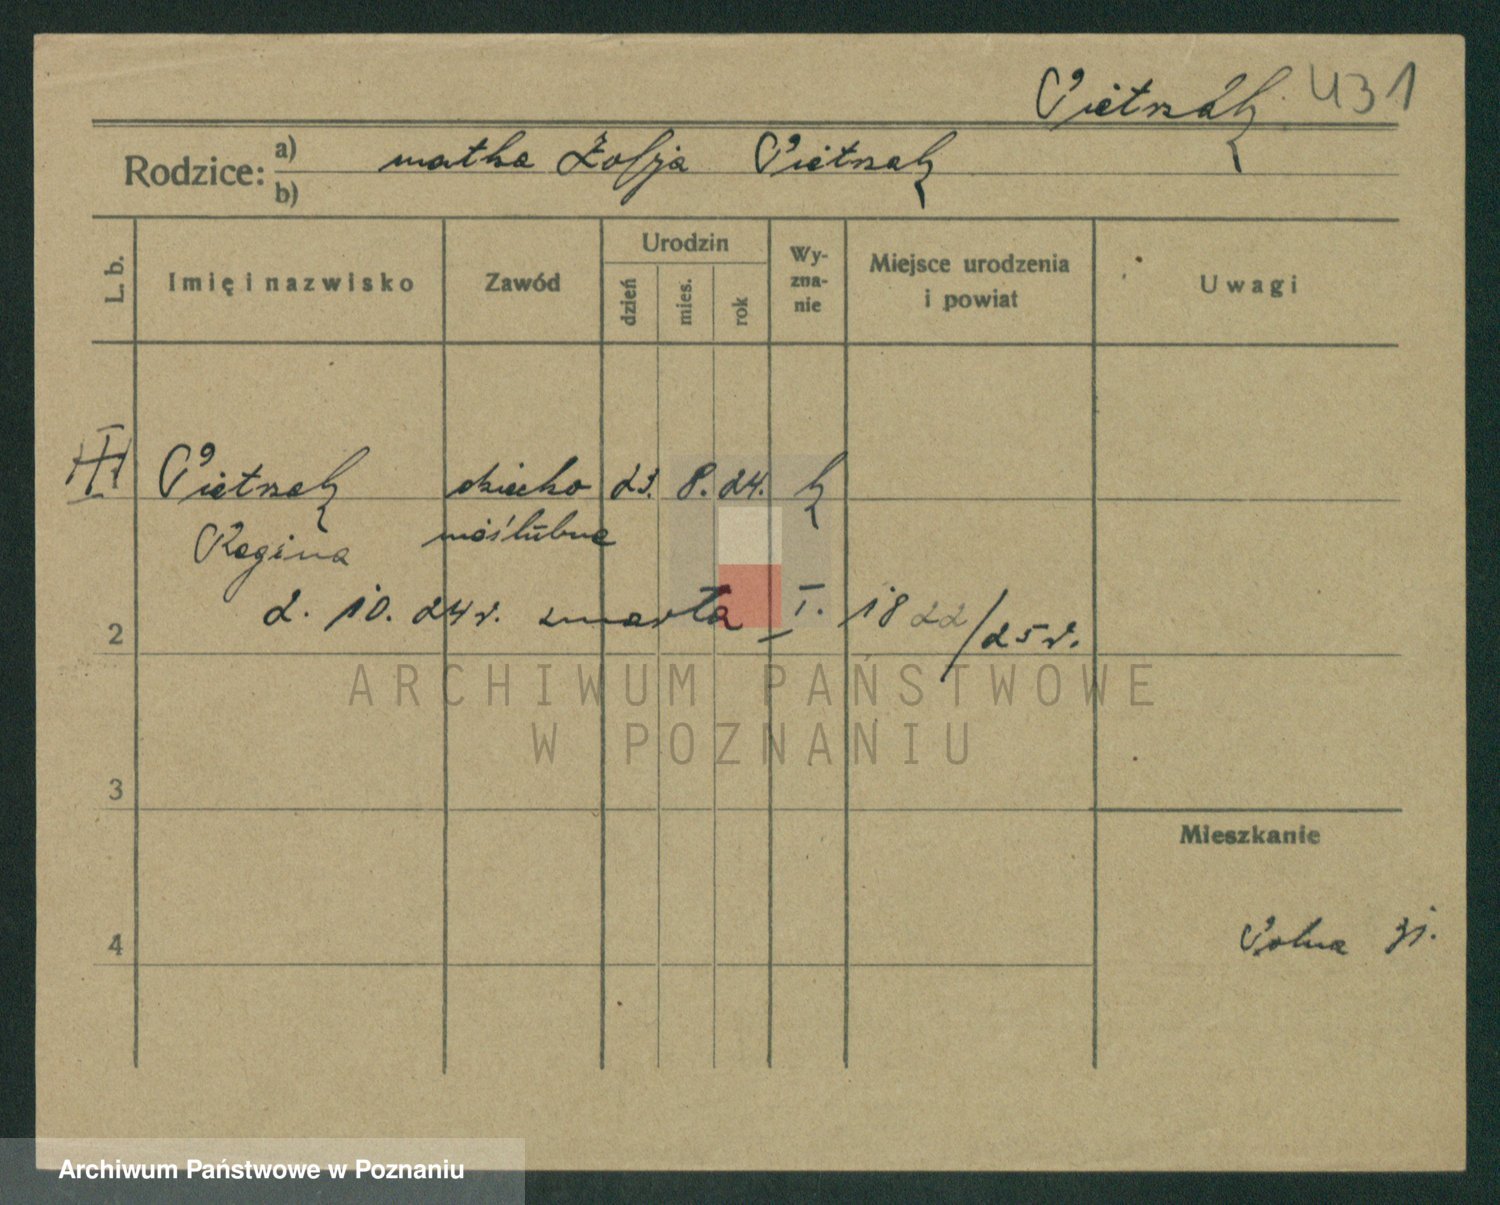 Pietrzak 431
Rodzice: a) matka Zofja Pietrzak
b)
L. b. Imię i nazwisko Zawód Urodzin dzień mies. rok Wyznanie Miejsce urodzenia i powiat Uwagi
III Pietrzak dziecko 23. 8. 24. k
Regina nieślubne
2. 10. 24 r. zmarła I. 1822/25 r.
2
ARCHIWUM PAŃSTWOWE
W POZNANIU
3
Mieszkanie
4 Polna 31.
Archiwum Państwowe w Poznaniu